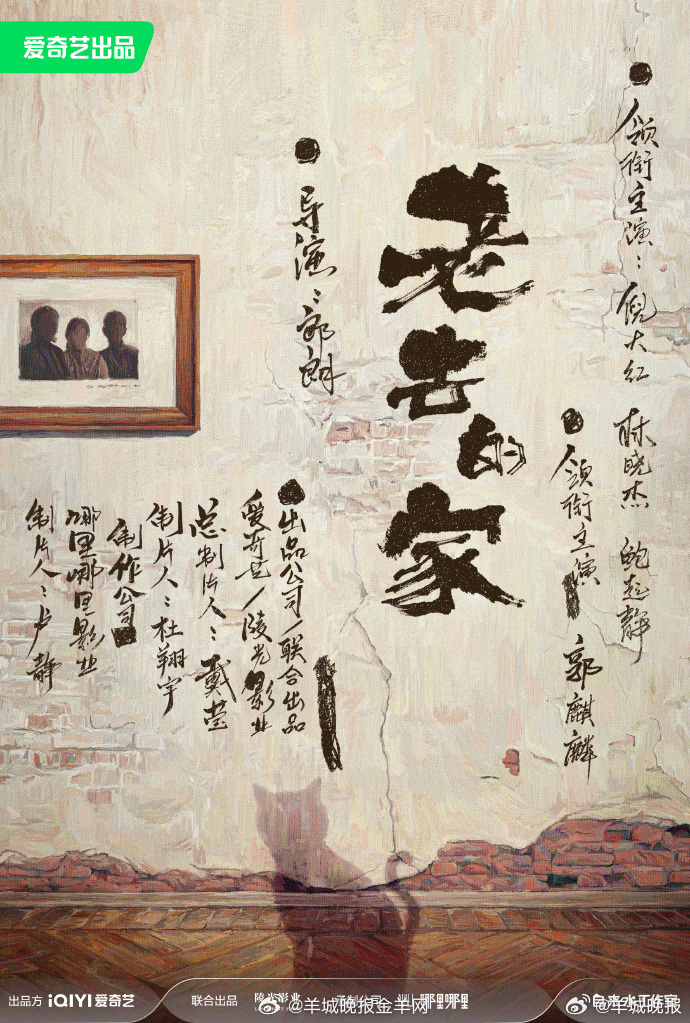 爱奇艺出品
领衔主演：倪大红 林晓杰 鲍起静
领衔主演 郭麒麟
老去的家
导演：郎朗
出品公司/联合出品
爱奇艺/陵光影业
总制片人：戴莹
制片人：杜翔宇
制作公司
哪里哪里影业
制片人：卢静
出品方 iQIYI 爱奇艺
联合出品 陵光影业
哪里哪里
自来水工作室
@羊城晚报金羊网
@羊城晚报